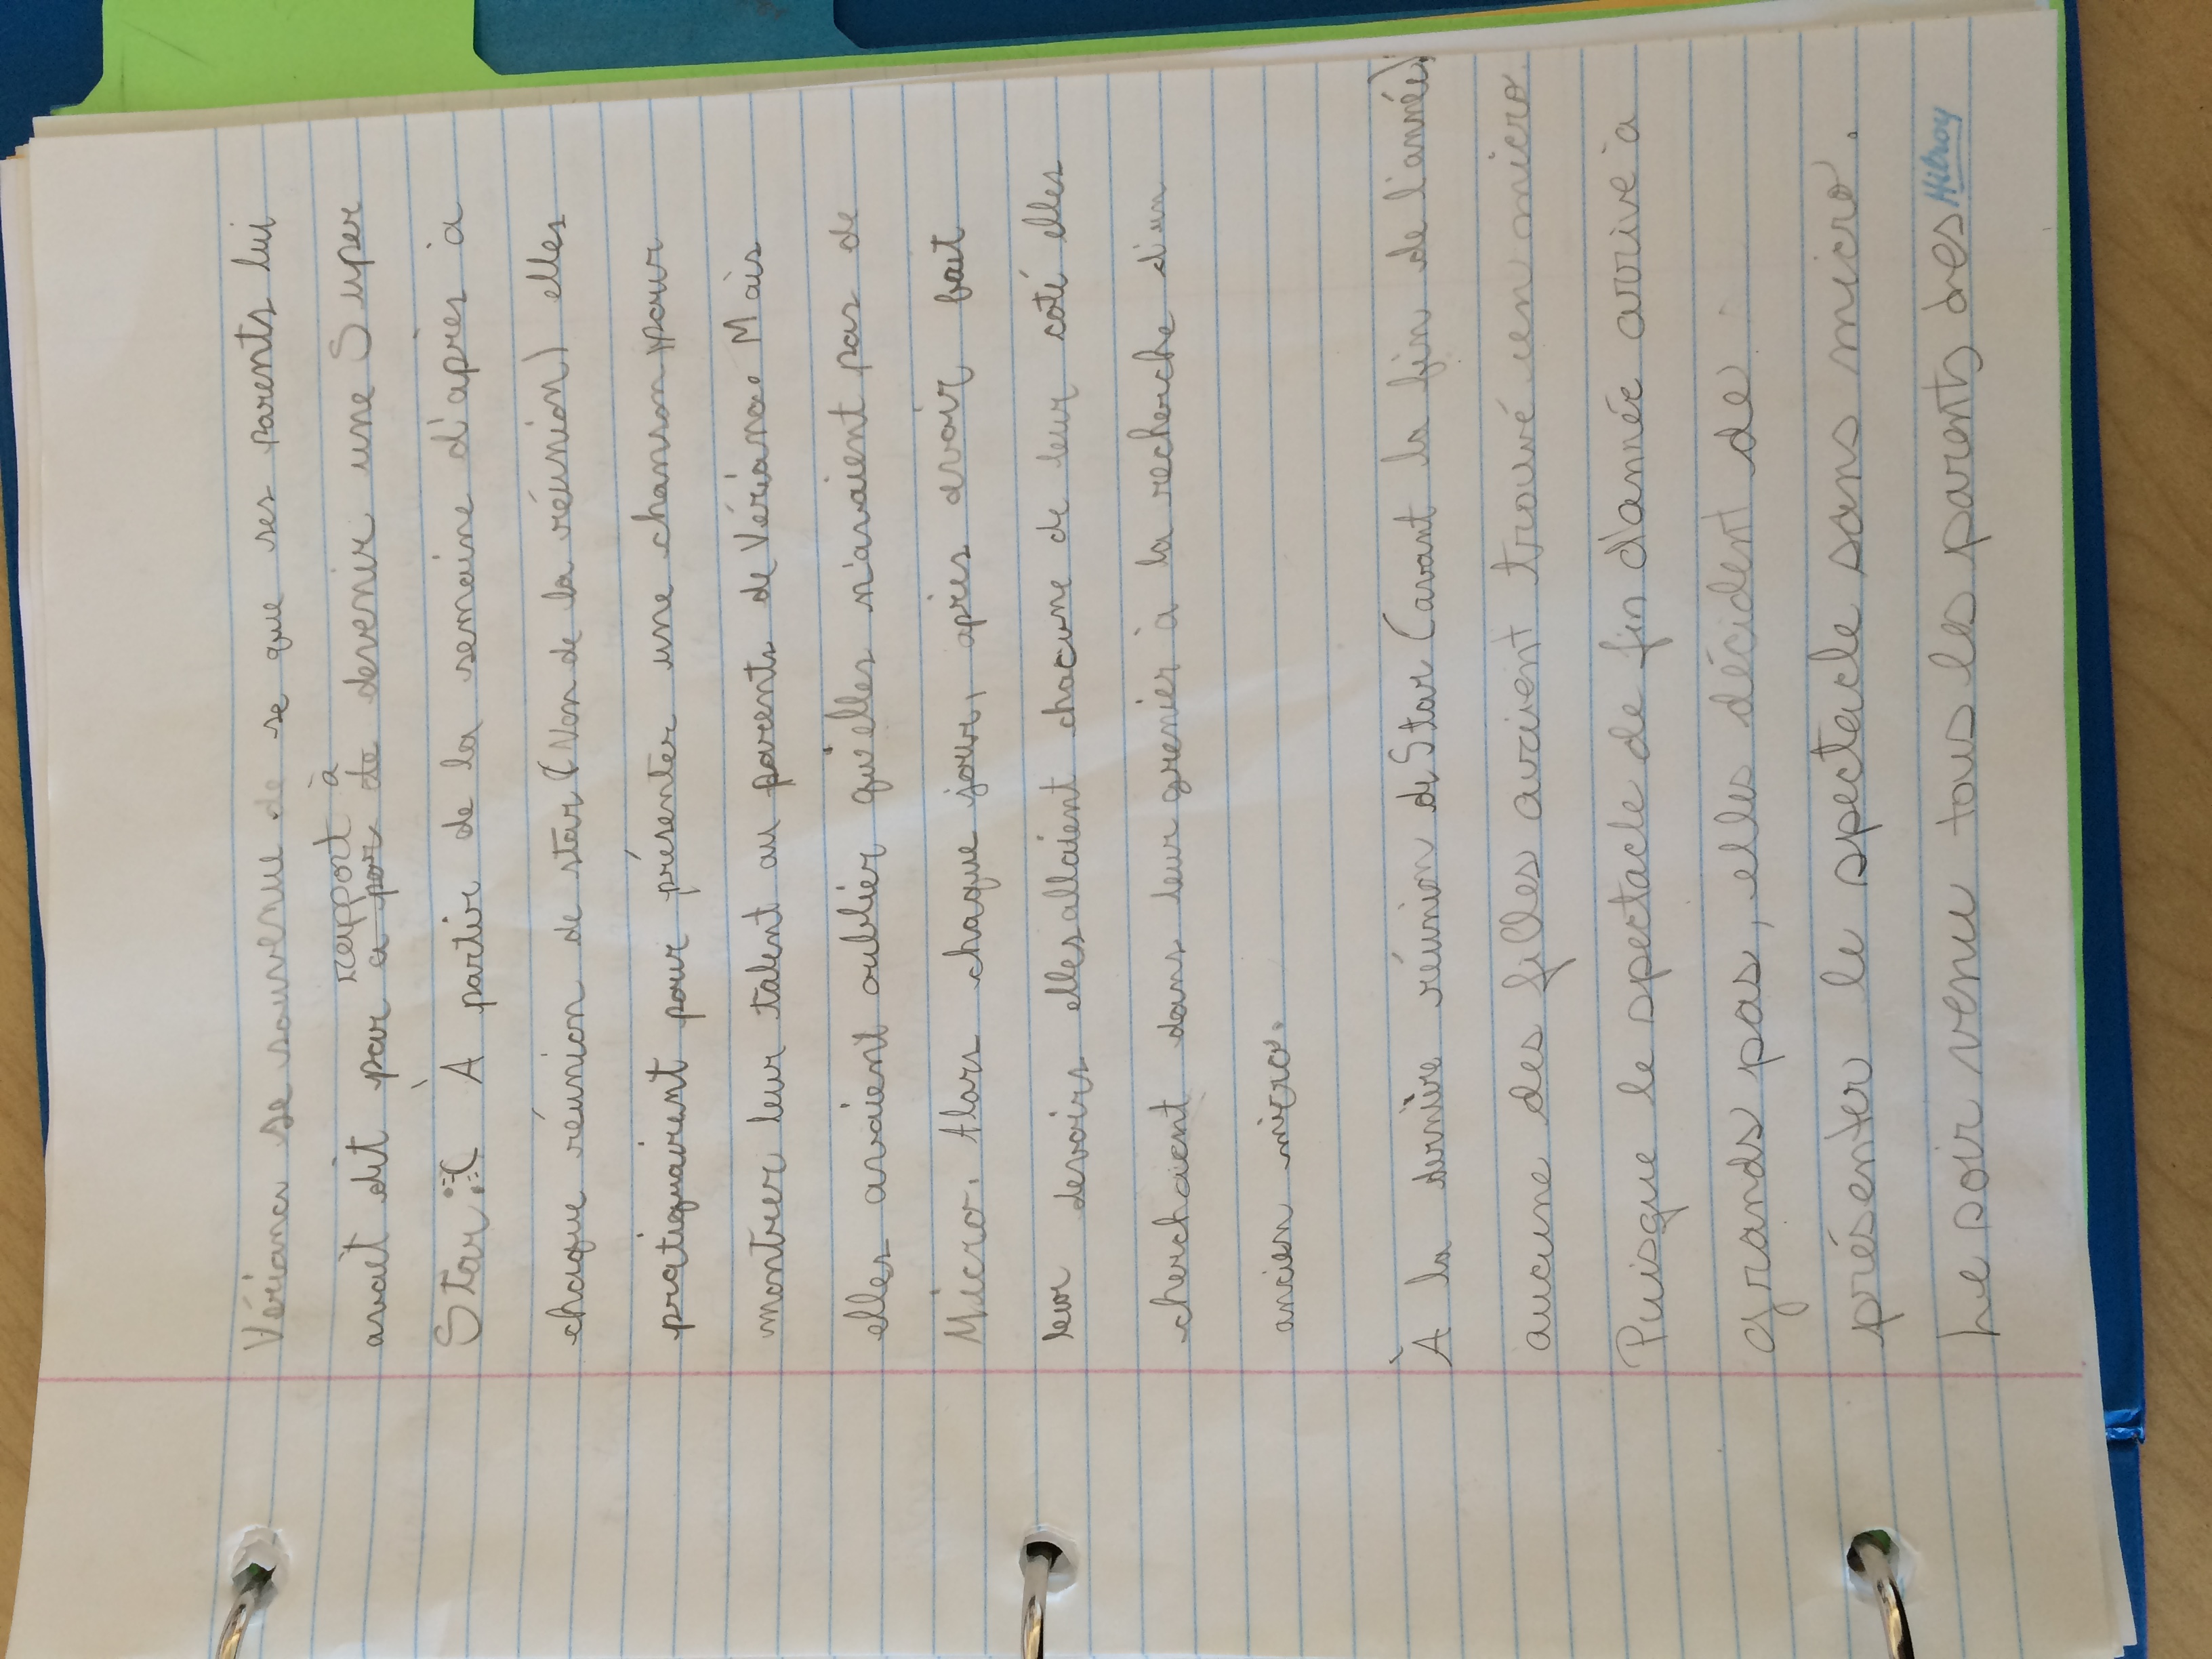 Vériance se souvenue de se que ses parents lui
avait dit par rapport à a por de devenir une Super
Star :( À partir de la semaine d'après à
chaque réunion de star (Non de la réunion) elles
pratiquairent pour présenter une chanson pour
montrer leur talent au parents de Vériance Mais
elles avaient oublier qu'elles n'avaient pas de
Micro. Alors chaque jour, après avoir fait
leur devoirs elles allaient chacune de leur coté elles
cherchaient dans leur grenier à la recherche d'un
ancien micro.
À la dernière réunion de Star (avant la fin de l'année)
aucune des filles avaient trouvé un micro.
Puisque le spectacle de fin d'année arrive à
grands pas, elles décident de
présenter le spectacle sans micro.
Le soir venu tous les parents des
Hilroy